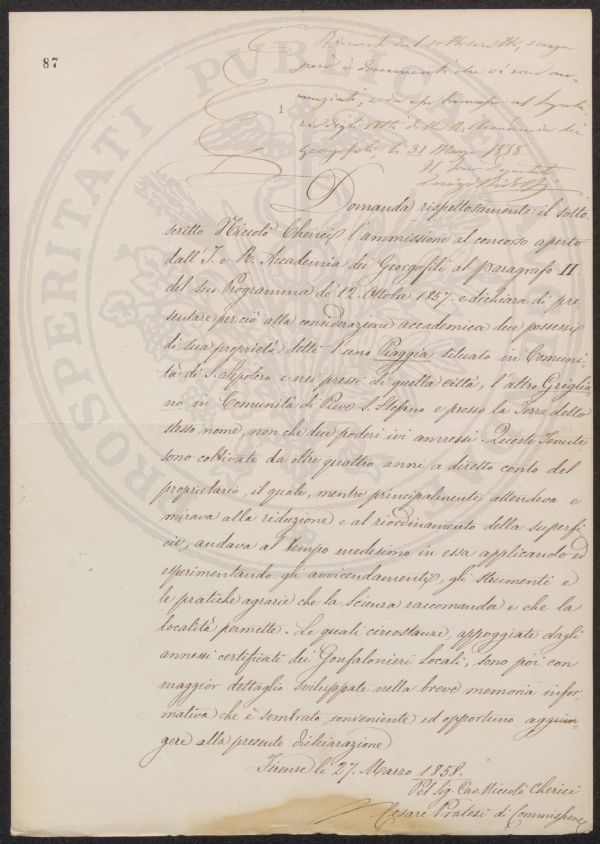 87
Ricevuta dal sottoscritto, sempre
però i documenti che vi sono an-
nunziati, e da trasmettersi al Segreta-
rio degli Atti della R. Accademia dei
Georgofili, li 31 Marzo 1858
1
Domanda rispettosamente il sotto-
scritto Niccolò Cherici l'ammissione al concorso aperto
dall'I. e R. Accademia dei Georgofili al paragrafo II
del suo Programma de' 12. Ottobre 1857. e dichiara di pre
sentare perciò alla considerazione accademica due possessi
di sua proprietà detti l'uno Piaggia situato in Comuni-
tà di S. Sepolcro e nei pressi di quella città, l'altro Griglia-
no in Comunità di Pieve S. Stefano e presso la Terra dello
stesso nome, non che due poderi ivi annessi. Queste Tenute
sono coltivate da oltre quattro anni a diretto conto del
proprietario, il quale, mentre principalmente attendeva e
mirava alla riduzione e al riordinamento della superfi
cie, andava al tempo medesimo in essa applicando ed
esperimentando gli avvicendamenti, gli strumenti e
le pratiche agrarie che la scienza raccomanda e che la
località permette. Le quali circostanze, appoggiate dagli
annessi certificati dei Gonfalonieri Locali, sono poi con
maggior dettaglio sviluppate nella breve memoria infor-
mativa che è sembrato conveniente ed opportuno aggiun-
gere alla presente dichiarazione
Firenze li 27. Marzo 1858.
Pel Sig. Cav. Niccolò Cherici
Cesare Pratesi di Commissione
PROSPERITATI PUBLICAE AUGENDAE